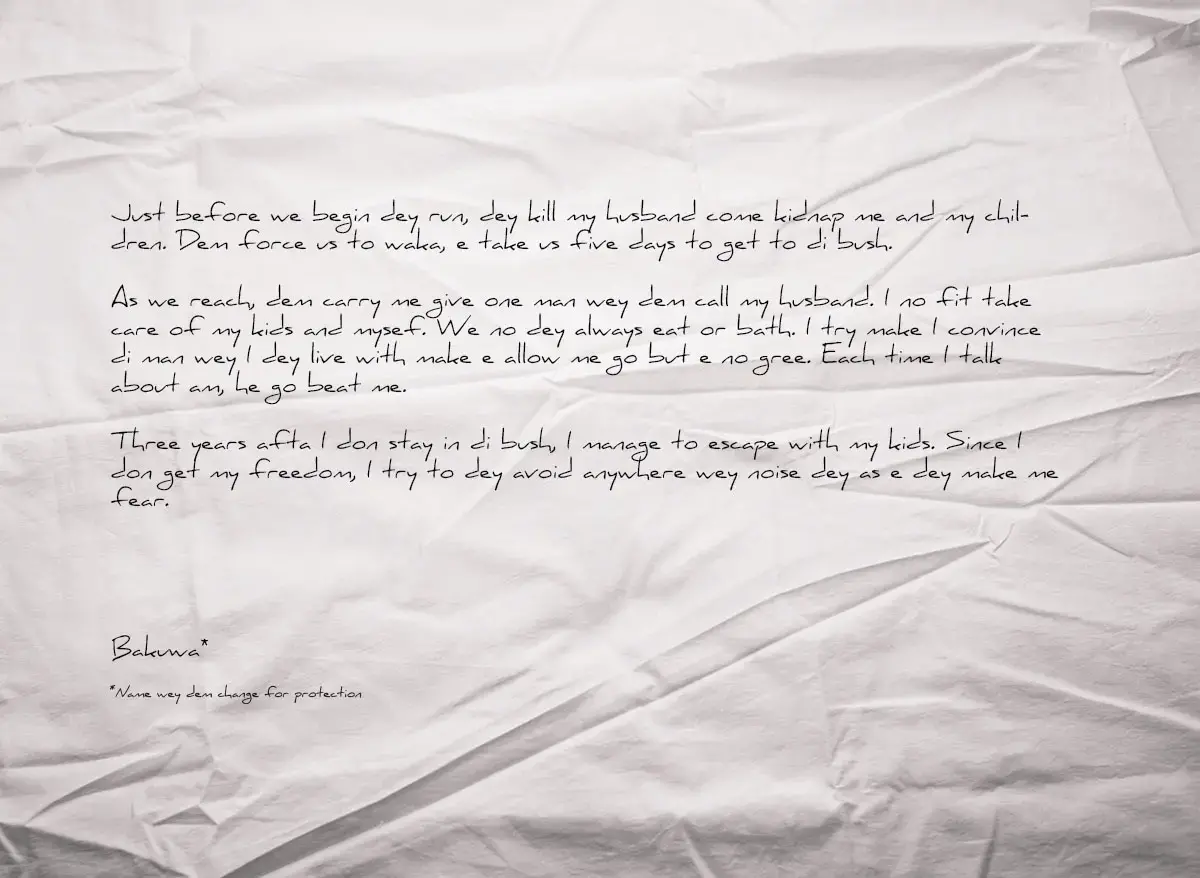 Just before we begin dey run, dey kill my husband come kidnap me and my chil-
dren. Dem force us to waka, e take us five days to get to di bush.
As we reach, dem carry me give one man wey dem call my husband. I no fit take
care of my kids and mysef. We no dey always eat or bath. I try make I convince
di man wey I dey live with make e allow me go but e no gree. Each time I talk
about am, he go beat me.
Three years afta I don stay in di bush, I manage to escape with my kids. Since I
don get my freedom, I try to dey avoid anywhere wey noise dey as e dey make me
fear.
Bakuwa*
*Name wey dem change for protection